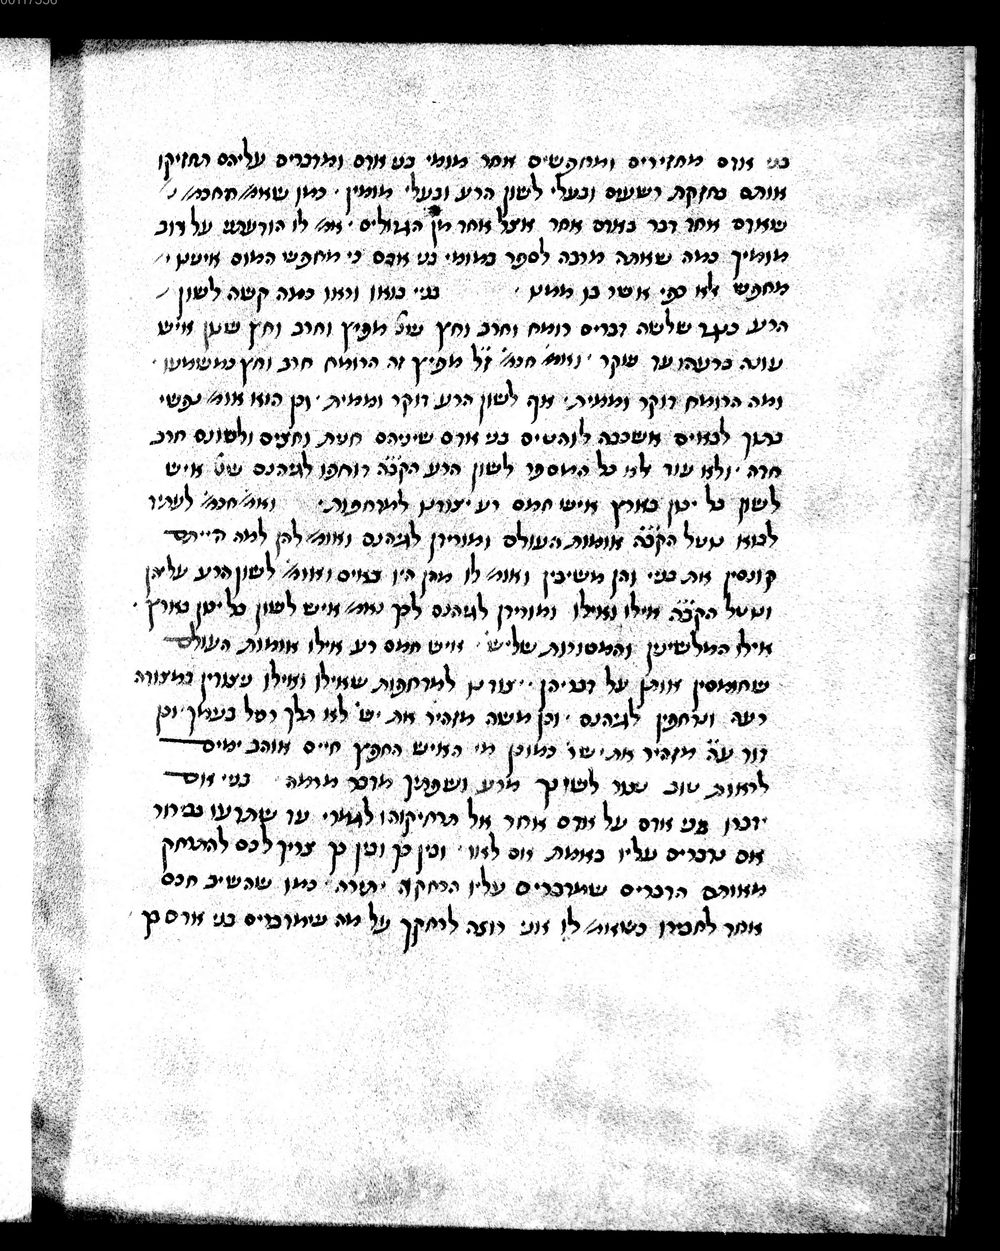 בני אדם מחזירים ומחפשים אחר מומי בני אדם ומדברים עליהם החזיקו
אותם בחזקת רשעים ובעלי לשון הרע ובעלי מומין · כמו שאמ' החכם
שאדם אחד דבר באדם אחר אצל אחד מן הגדולים · אמ' לו הודעתני על רוב
מומיך במה שאתה מרבה לספר במומי בני אדם כי מחפש המום אינו
מחפש אלא כפי אשר בו ממנו · בני בואו וראו כמה קשה לשון
הרע כנגד שלשה דברים רומח וחרב וחץ שנ' מפיץ וחרב וחץ שנון איש
עונה ברעהו עד שקר · ואמ' חכמ' ז"ל מפיץ זה הרומח חרב וחץ כמשמעו ·
ומה הרומח דוקר וממית · אף לשון הרע דוקר וממית · וכן הוא אומ' נפשי
בתוך לבאים אשכבה לוהטים בני אדם שיניהם חנית וחצים ולשונם חרב
חדה · ולא עוד אלא כל המספר לשון הרע הקב"ה דוחפו לגיהנם שנ' איש
לשון בל יכון בארץ איש חמס רע יצודנו למדחפות · ואמ' חכמ' לעתיד
לבוא נוטל הקב"ה אומות העולם ומורידן לגיהנם ואומ' להן למה הייתם
קונסין את בניי והן משיבין ואומ' לו מהן היו באים ואומ' לשון הרע עליהן
ונוטל הקב"ה אילו ואילו ומורידן לגיהנם לכך נאמ' איש לשון בל יכון בארץ ·
אילו המלשינין והמסורות שליש' · איש חמס רע אילו אומות העולם
שחומסין אותן על דבריהן · יצודנו למדחפות שאילו ואילו נצודין במצודה
רעה ונדחפין לגיהנם · וכן משה מזהיר את יש' לא תלך רכיל בעמיך · וכן
דוד ע"ה מזהיר את יש' כמוכן מי האיש החפץ חיים אוהב ימים
לראות טוב נצור לשונך מרע ושפתיך מדבר מרמה · בני אם
ידברו בני אדם על אדם אחד אל תרחיקוהו לגמרי עד שתדעו בבירור
אם מדברים עליו באמת אם לאו · ובין כך ובין כך צריך לכם להתרחק
מאותם הדברים שמדברים עליו הרחקה יתירה · כמו שהשיב חכם
אחד לחבירו כשאמ' לו אני רוצה לרחקך על מה שמדברים בני אדם בך